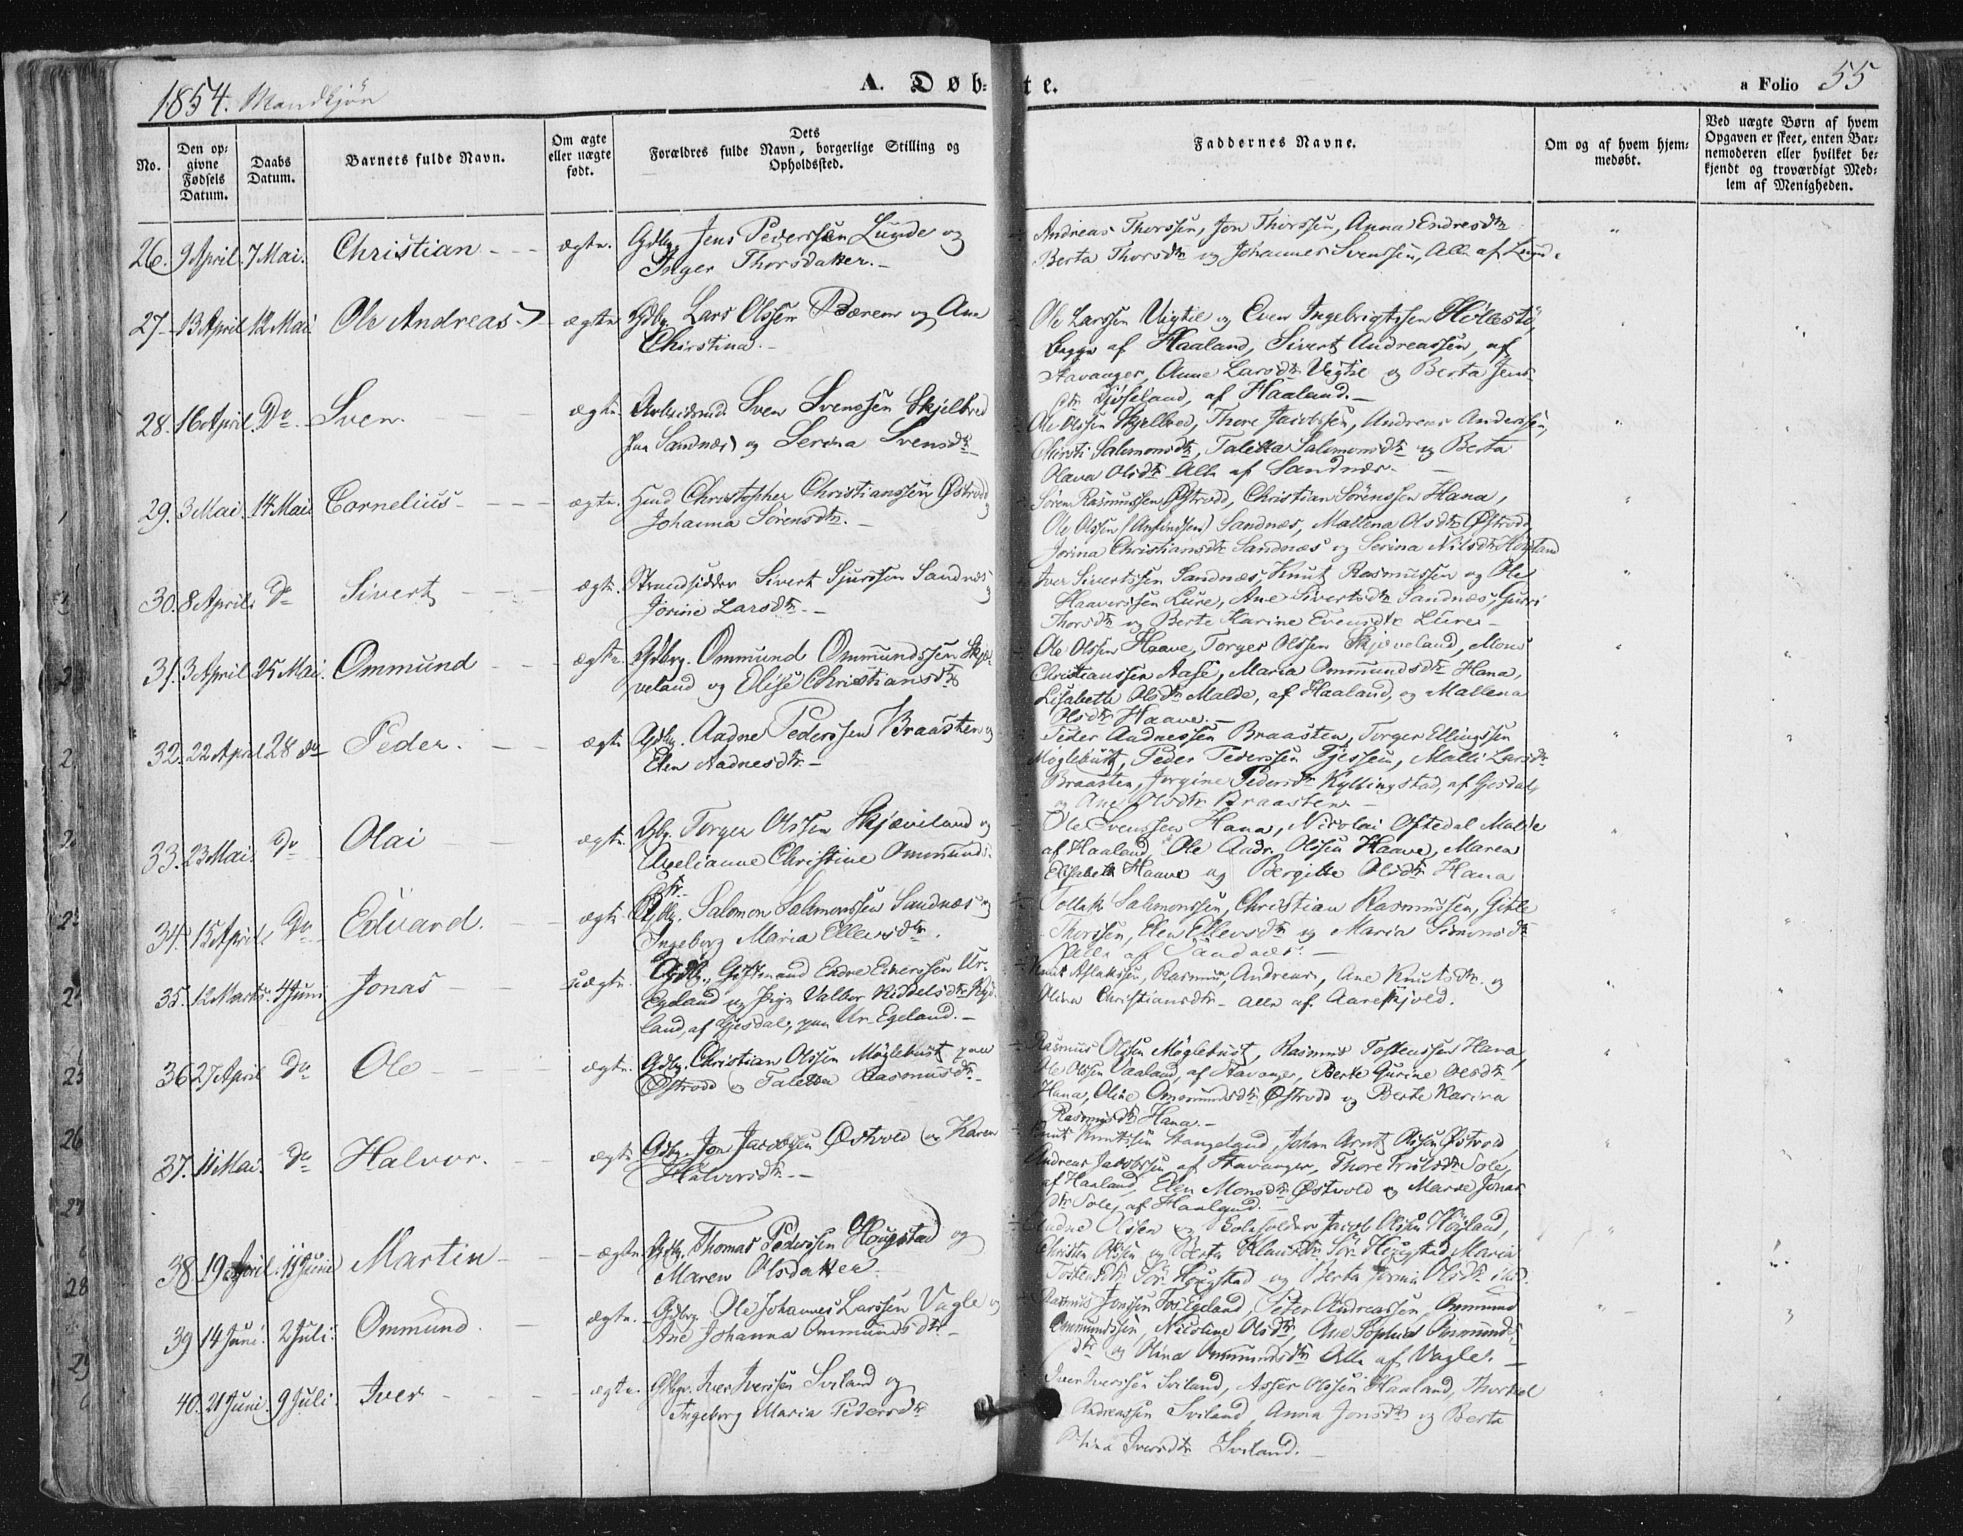 1854. Mandkjön
A. Døbte.
a Folio 55
No.
Den op-
givne
Fødsels
Datum.
Daabs
Datum.
Barnets fulde Navn.
Om ægte
eller uægte
født.
Dets
Forældres fulde Navn, borgerlige Stilling og
Opholdssted.
Faddernes Navne.
Om og af hvem hjem-
medøbt.
Ved uægte Børn af hvem
Opgaven er skeet, enten Bar-
nemoderen eller hvilket be-
kjendt og troværdigt Med-
lem af Menigheden.
26. 9 April. 7 Mai. Christian ægte. Gdbg. Jens Pederssen Lunde og
Inger Thorsdatter.
Andreas Thorssen, Jon Thorssen, Anna Endresdtr
Berta Thorsdtr og Johannes Svenssen, Alle af Lund.
27. 13 April 12 Mai Ole Andreas ægte Gdbg. Lars Olssen Bærem og Ane
Christina.
Ole Larssen Vigtil og Even Ingebrigtssen
begge af Haaland, Sivert Andreassen, af
Stavanger, Anne Larsdtr Vigtil og Berta Jens-
dtr af Haaland.
28. 16 April. Do. Sven. ægte. Sven Svenssen Skjelbred
paa Sandnæs og Serena Svensdtr
Ole Olssen Skjelbred, Thore Jacobssen, Andreas Anderssen,
Kirsti Salomonsdtr, Taletta Salomonsdtr og Berta
Olava Olsdtr Alle af Sandnæs.
29. 3 Mai. 14 Mai Cornelius ægte. Christopher Christianssen Østrodd og
Johanna Sørensdtr.
Søren Rasmussen Østrodd, Christian Sørenssen Hana,
Ole Olssen Sandnæs, Mallena Olsdtr Østrodd,
Jorina Christiansdtr Sandnæs og Serina Nilsdtr
30. 8 April Do Sivert ægte. Strandsidder Sivert Sjurssen Sandnæs og
Jorine Larsdtr.
Iver Sivertssen Sandnæs, Knut Rasmussen og Ole
Haaverssen Lure, Ane Sivertsdtr Sandnæs, Gurri
Thorsdtr og Berte Karine Evensdtr Lure
31. 3 April 25 Mai. Ommund ægte. Gdbrg. Ommund Ommundssen Skjæ-
veland og Elise Christiansdtr
Ole Olssen Haave, Torger Olssen Skjæveland, Mons
Christianssen Aase, Maria Ommundsdtr Hana,
Lisabeth Olsdtr Malde, af Haaland, og Mallena
Olsdtr Haave.
32. 22 April 28 do Peder. ægte Gdbg. Aadne Pederssen Braasten og
Elen Aadnesdtr.
Peder Aadnessen Braasten, Torger Ellingssen
Møglebust, Peder Pederssen Fjessem, Malli Larsdtr
Braasten, Jorgine Pedersdtr Kyllingstad, af Gjesdal,
og Ane Olsdtr Braasten
33. 23 Mai. do Olai ægte. Gbg. Torger Olssen Skjæveland og
Axelianne Christine Ommunds-
dtr.
Ole Svenssen Hana, Nicolai Oftedal Malde
af Haaland Ole Andr. Olssen Haave, Maren
Elisabeth Haave og Bergitte Olsdtr Hana
34. 15 April do. Edvard. ægte Gdbg. Salomon Salomonssen Sandnæs og
Ingeborg Maria Ellevsdtr.
Tollak Salomonssen, Christian Rasmussen, Gitle
Thorssen, Elen Ellevsdtr og Maria Simonsdtr
Alle af Sandnæs.
35. 12 Marts. 4 Juni Jonas uægte. Endre Einerssen Ur-
Egeland og Pige Valbor
land, af Gjesdal, paa Ur-Egeland.
Knut Aslakssen, Rasmus, Andreas, Ane Knutsdtr. og
Olina Christiansdtr alle af Aareskjold.
36. 27 April do Ole ægte. Gdbg. Christian Olssen Møglebust paa
Østrodd og Taletta Rasmusdtr.
Rasmus Olssen Møglebust, Rasmus Tostenssen Hana,
Ole Olssen Vaaland, af Stavanger, Berte Gurine Olsdtr.
Hana, Oline Ommundsdtr Østrodd og Berte Karina
Rasmusdtr Hana.
37. 11 Mai. do Halvor. ægte Gdbg. Jon Jacobssen Østvold og Karen
Halvorsdtr.
Knut Knutssen Stangeland, Johan Arnt Olssen Østvold,
Andreas Jacobssen af Stavanger, Thore Sole,
af Haaland, Elen Monsdtr Østvold og Marte Jonas-
dtr Sole, af Haaland.
38. 19 April. 11 Juni Martin ægte. Gdbr. Thomas Pederssen Hougstad og
Maren Olsdatter.
Aadne Olssen og Jacob Olssen Høyland,
Christen Olssen og Berta Klausdtr Sør-Hougstad Maria
Tostensdtr Sør-Hougstad og Berta Olsdtr ibid.
39 14 Juni. 2 Juli. Ommund. ægte. Gdbrg. Ole Johannes Larssen Vagle og
Ane Johanna Ommundsdtr
Rasmus Jonssen Fos-Egeland, Peter Andreassen, Ommund
Ommundssen, Nicoline Olsdtr, Ane Sophia Ommunds-
dtr og Olina Ommundsdtr Alle af Vagle.
40. 21 Juni. 9 Juli. Iver ægte. Gdbgr. Iver Iverssen Sviland og
Ingeborg Maria Pedersdtr
Iver Iverssen Sviland, Asser Olssen Haaland, Thorkel
Andreassen Sviland, Anna Jonsdtr og Berta
Olina Iversdtr Sviland.